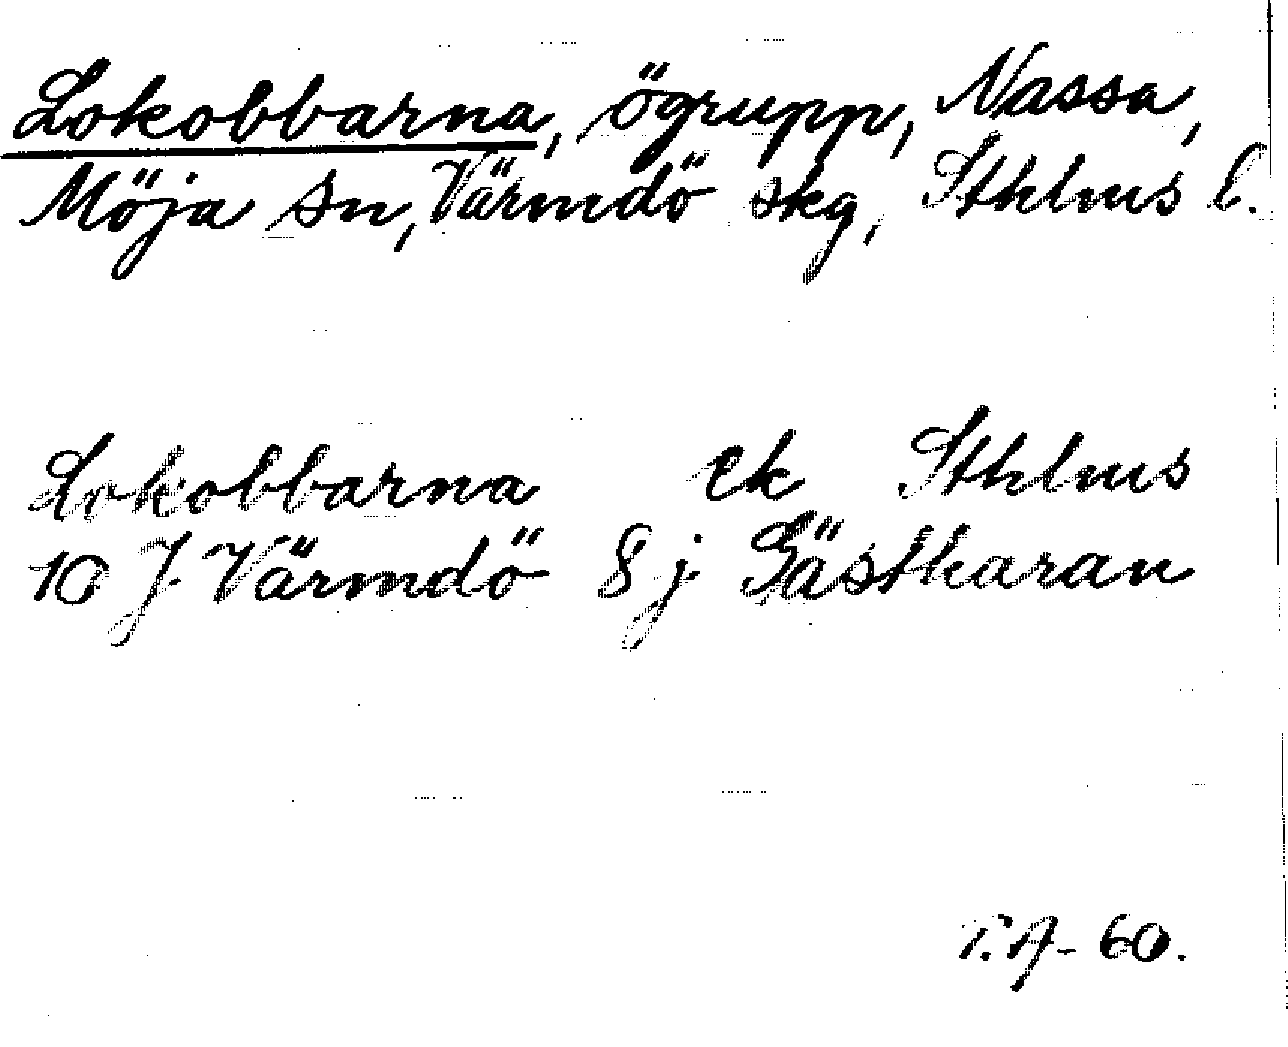 Lokobbarna, ögrupp, Nassa,
Möja sn, Värmdö skg, Sthlms l.
Lokobbarna ek Sthlms
10 J Värmdö 8 j Gästkaran
T.A- 60.